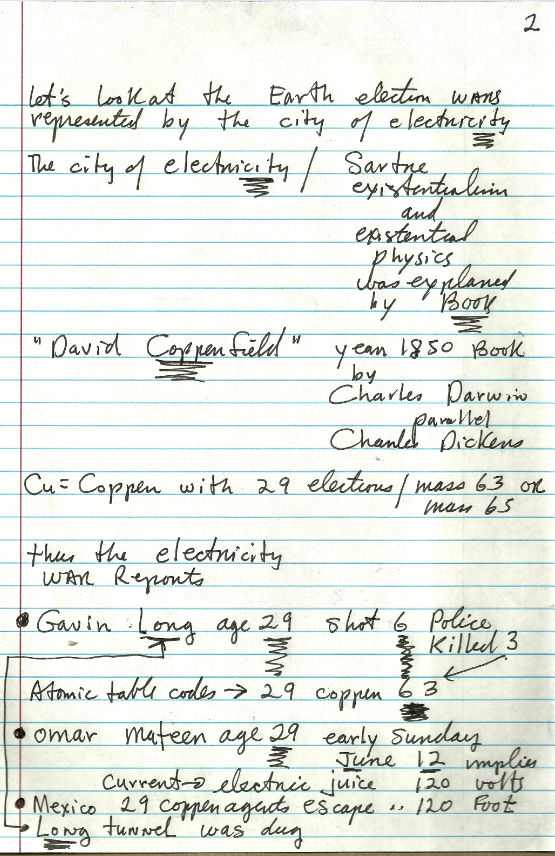 2
let's look at the Earth election WARS
represented by the city of electricity
The city of electricity / Sartre
existentialism
and
existential
physics
was explaned
by Book
"David Coppenfield" year 1850 Book
by
Charles Darwin
parallel
Charles Dickens
Cu = Coppen with 29 elections / mass 63 or
mass 65
thus the electricity
WAR Reports
• Gavin Long age 29 shot 6 Police
Killed 3
Atomic table codes → 29 coppen 63
• omar mateen age 29 early Sunday
June 12 implies
Current → electric juice 120 volts
• Mexico 29 coppen agents escape .. 120 Foot
Long tunnel was dug